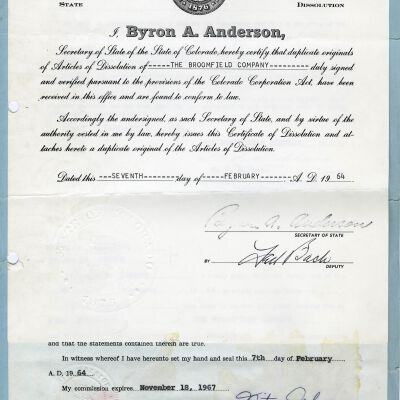 STATE
DISSOLUTION
1876
I, Byron A. Anderson,
Secretary of State of the State of Colorado, hereby certify that duplicate originals
of Articles of Dissolution of -----THE BROOMFIELD COMPANY-------- duly signed
and verified pursuant to the provisions of the Colorado Corporation Act, have been
received in this office and are found to conform to law.
Accordingly the undersigned, as such Secretary of State, and by virtue of the
authority vested in me by law, hereby issues this Certificate of Dissolution and at-
taches hereto a duplicate original of the Articles of Dissolution.
Dated this ---SEVENTH-------day of-----FEBRUARY------ A. D. 19 64
Byron A. Anderson
SECRETARY OF STATE
BY
DEPUTY
and that the statements contained therein are true.
In witness whereof I have hereunto set my hand and seal this 7th day of February
A. D. 19 64
My commission expires November 18, 1967